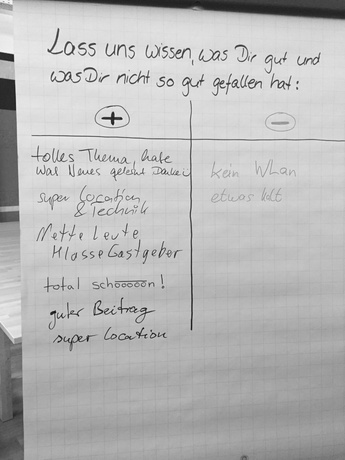 Lass uns wissen, was Dir gut und
was Dir nicht so gut gefallen hat:
+
−
tolles Thema, habe
was Neues gelernt Danke!
super Location
& Technik
Nette Leute
Klasse Gastgeber
total schööööön!
guter Beitrag
super Location
kein WLan
etwas kalt